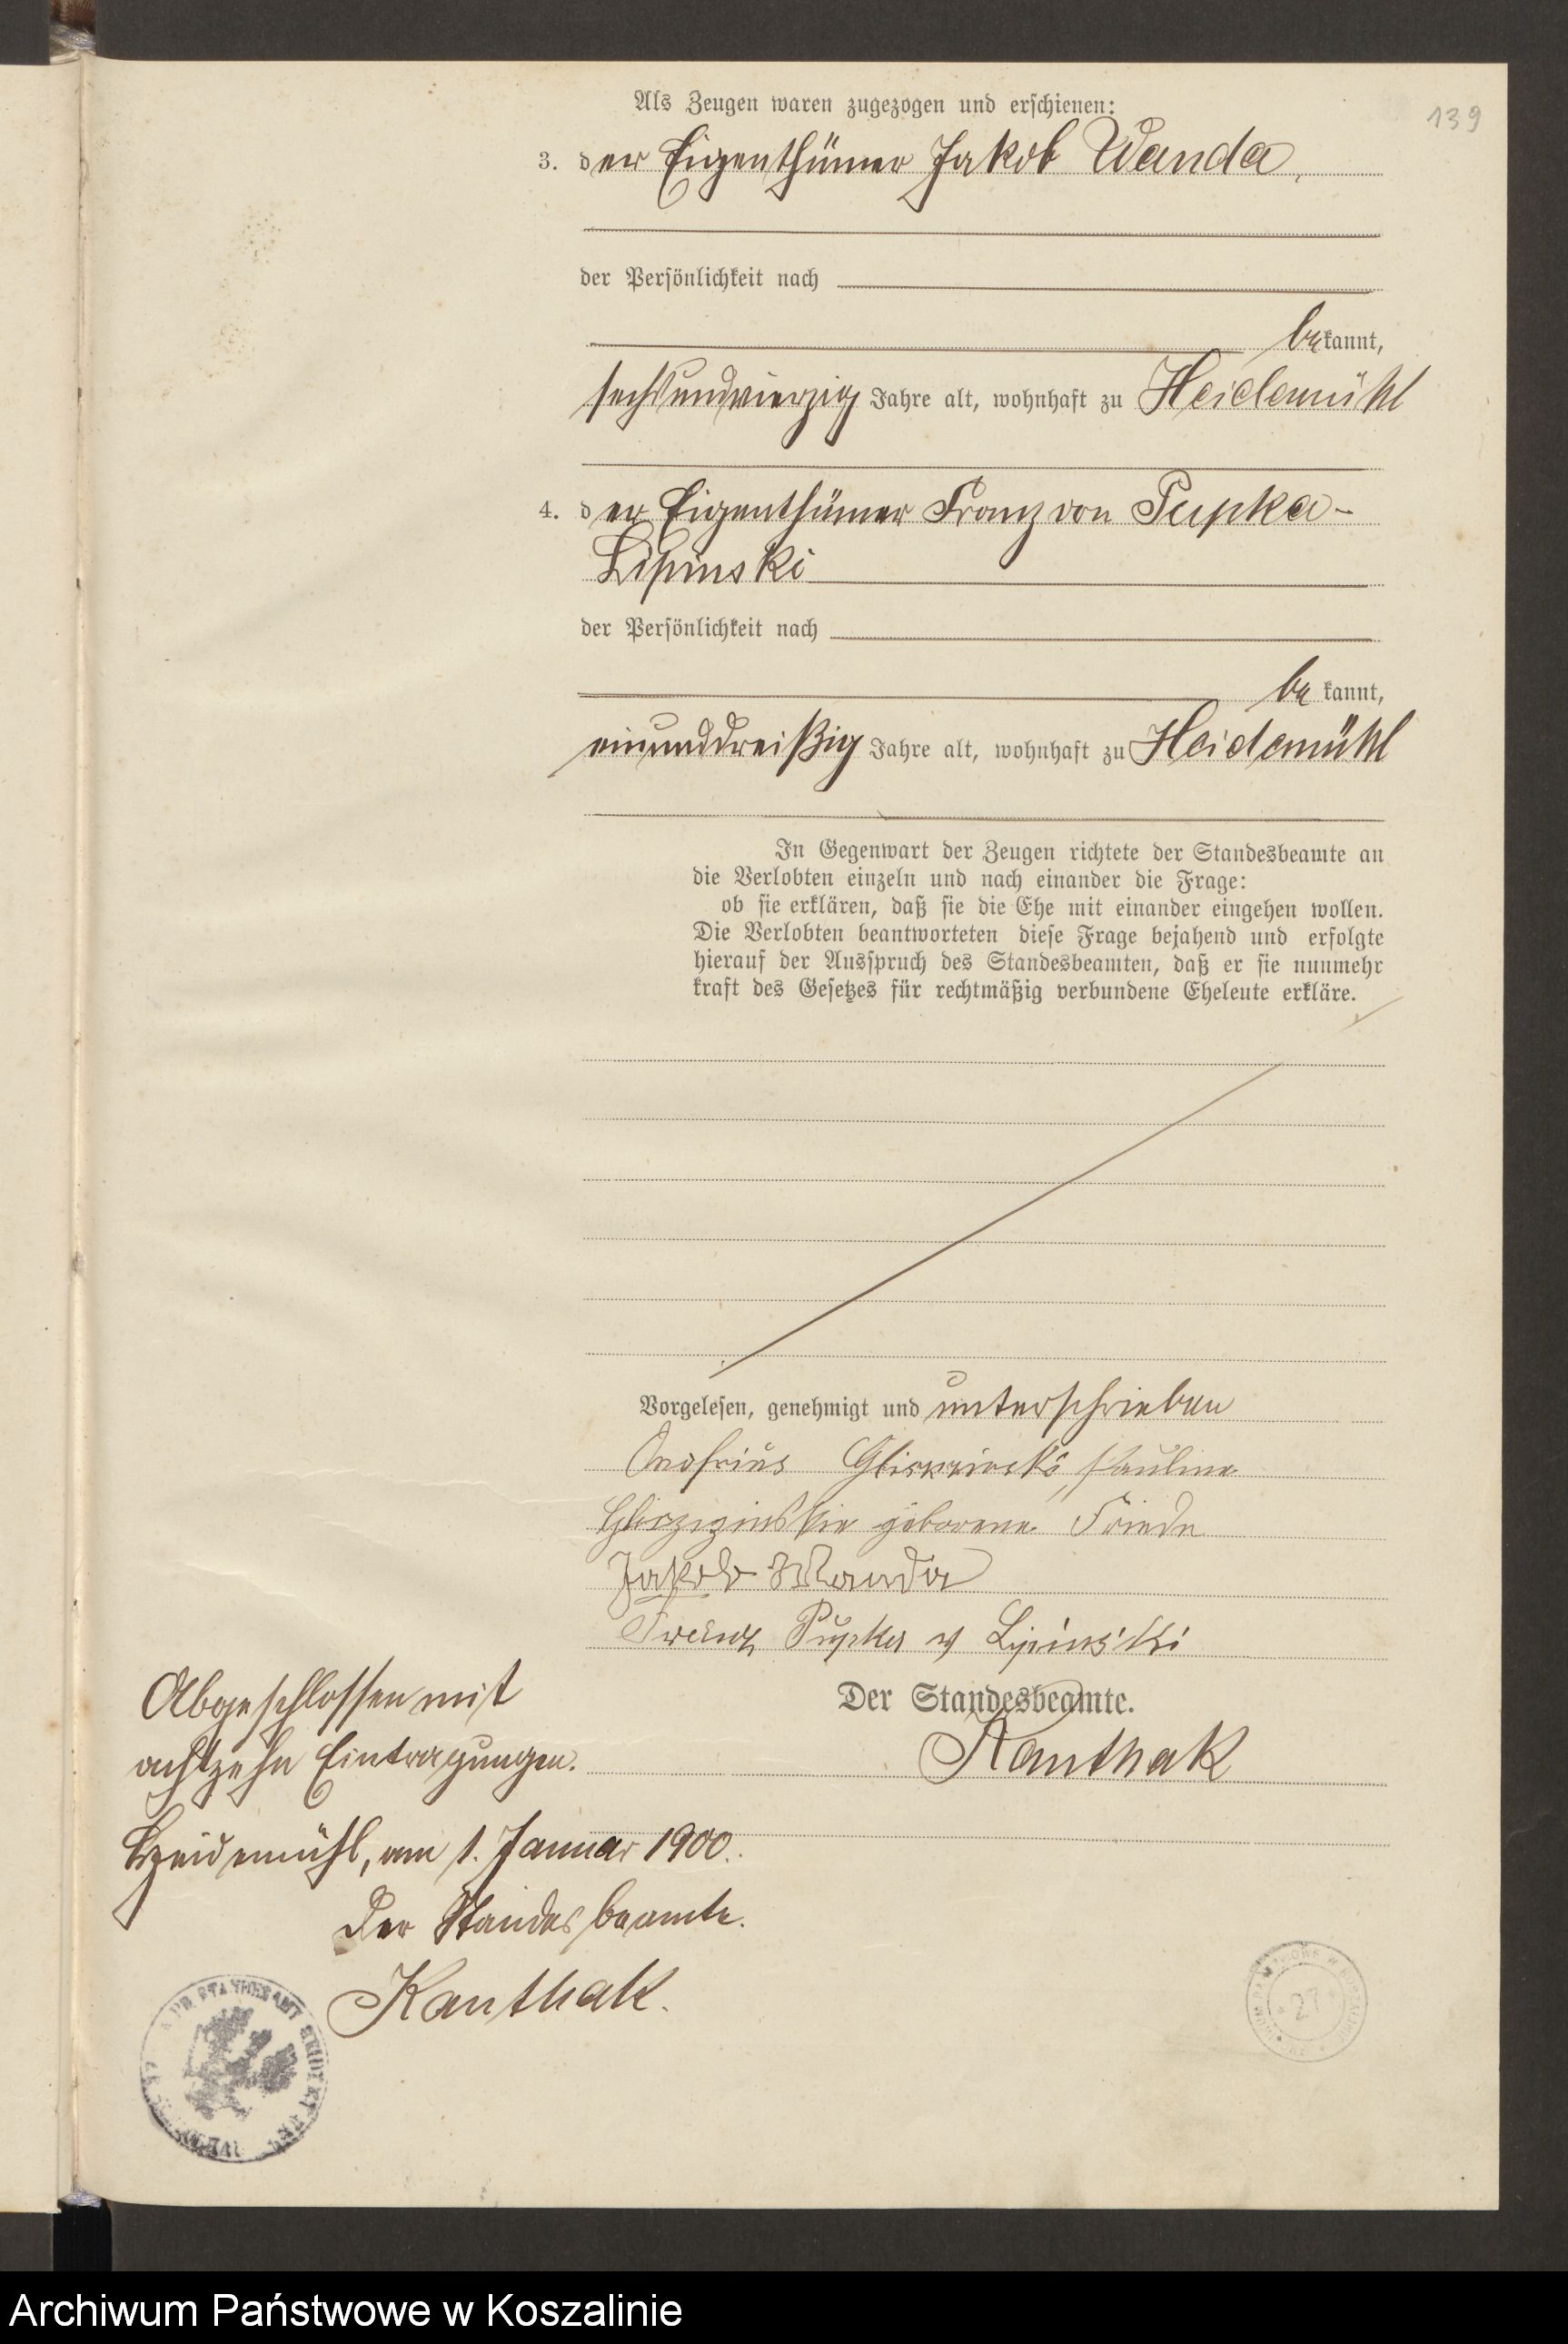 139
Als Zeugen waren zugezogen und erschienen:
3. der Eigenthümer Jakob Wanda,
der Persönlichkeit nach
bekannt,
sechsundvierzig Jahre alt, wohnhaft zu Heidemühl
4. der Eigenthümer Franz von Pupka-
Lipinski
der Persönlichkeit nach
be kannt,
einunddreißig Jahre alt, wohnhaft zu Heidemühl
In Gegenwart der Zeugen richtete der Standesbeamte an
die Verlobten einzeln und nach einander die Frage:
ob sie erklären, daß sie die Ehe mit einander eingehen wollen.
Die Verlobten beantworteten diese Frage bejahend und erfolgte
hierauf der Ausspruch des Standesbeamten, daß er sie nunmehr
kraft des Gesetzes für rechtmäßig verbundene Eheleute erkläre.
Vorgelesen, genehmigt und unterschrieben
Onofrius Gliszczinski, Pauline
geborene Friede
Jakob Wanda
Franz Pupka v Lipinski
Der Standesbeamte.
Kanthak
Abgeschlossen mit
achtzehn Eintragungen.
Heidemühl, am 1. Januar 1900.
Der Standesbeamte.
Kanthak.
27
Archiwum Państwowe w Koszalinie